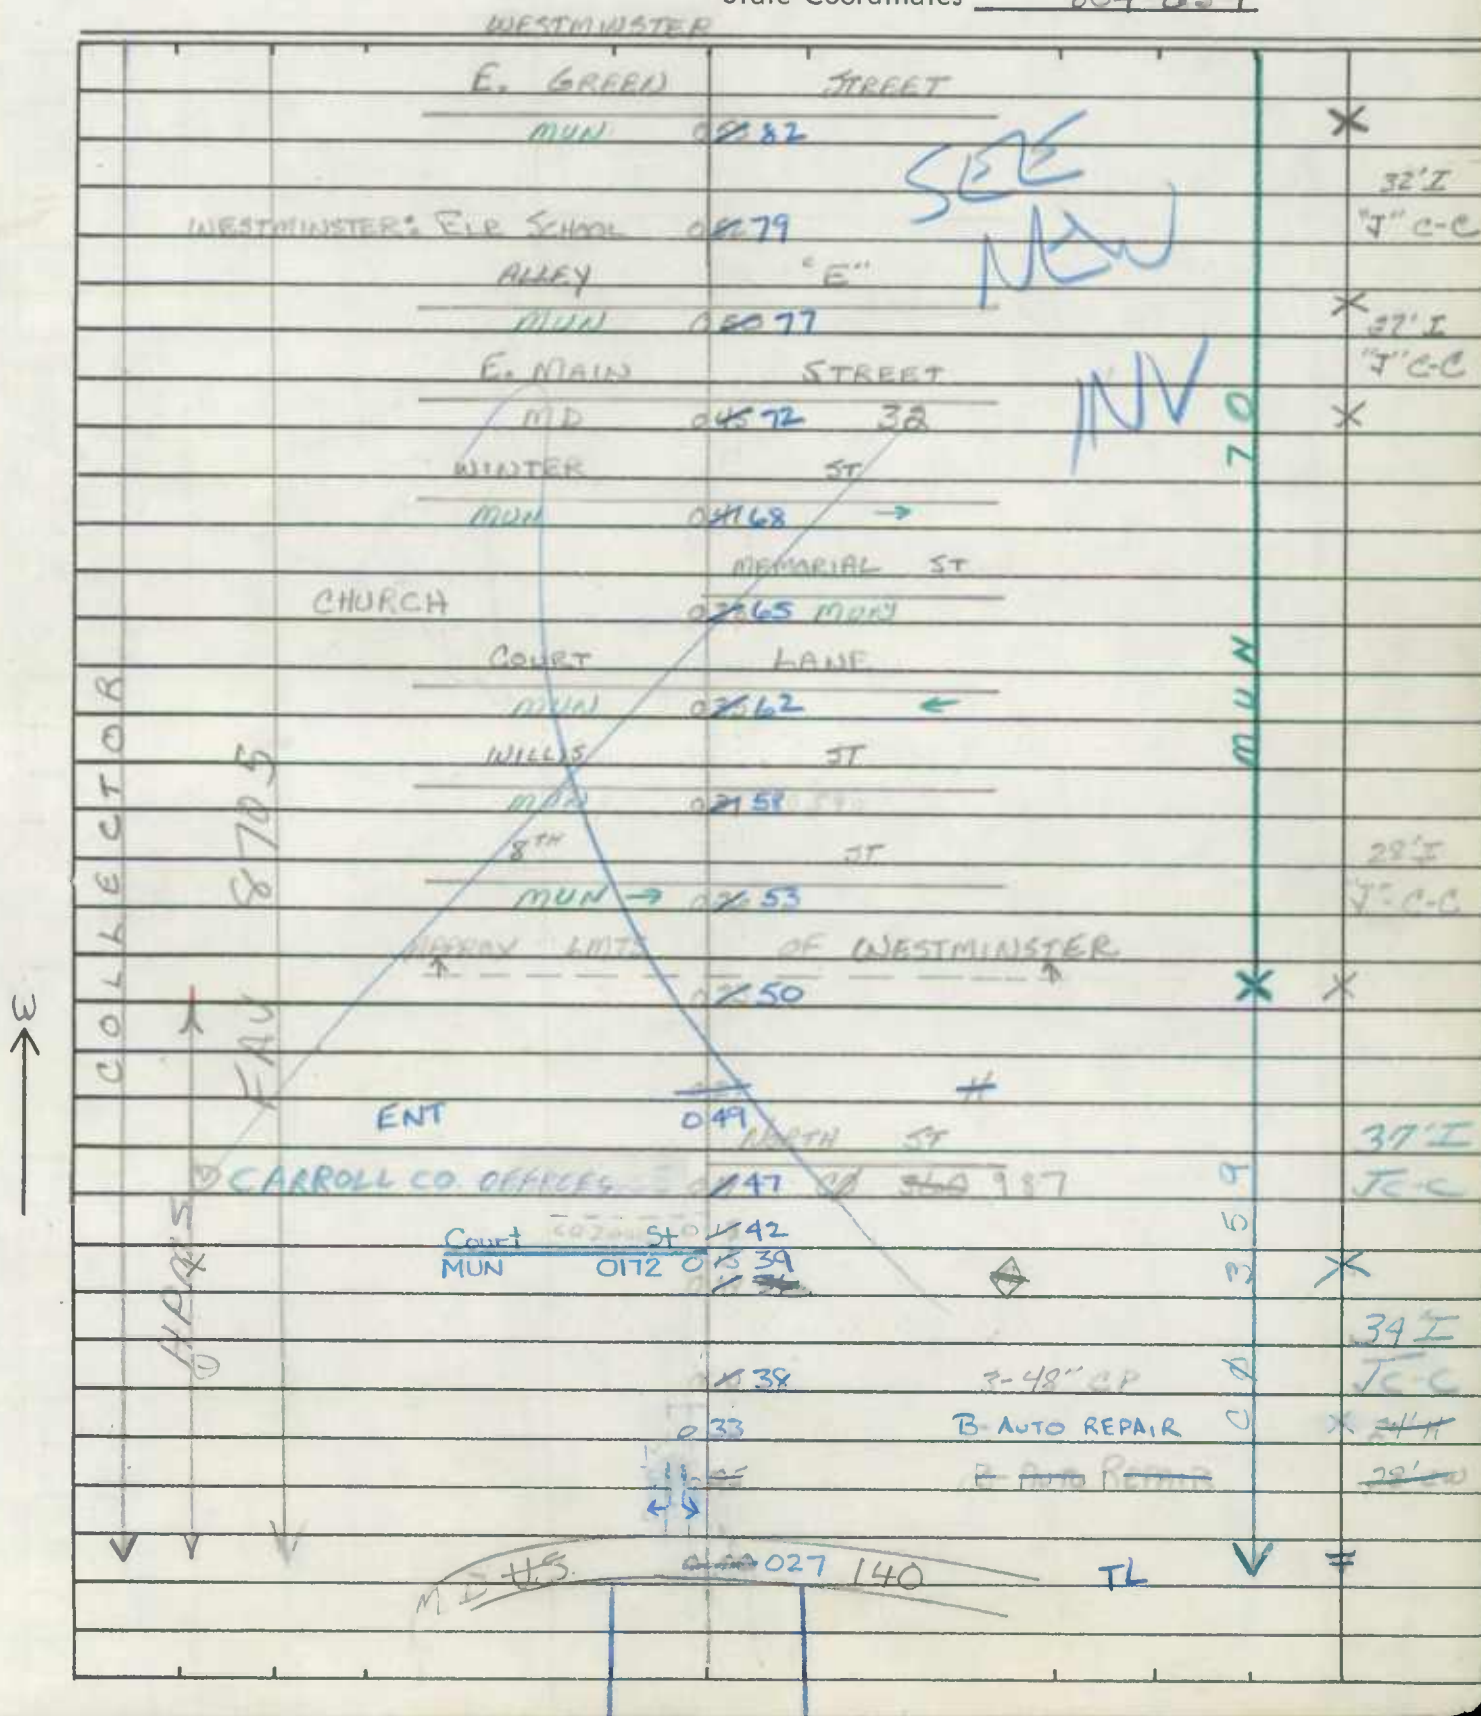 State Coordinates
WESTMINSTER
E. GREEN STREET
MUN 0 82
SEE
NEW
INV
32' I
"J" C-C
WESTMINSTER: ELE SCHOOL 0 79
ALLEY "E"
MUN 0 77
27' I
"J" C-C
E. MAIN STREET
MD 0 45 72 32
WINTER ST
MUN 0 41 68 →
MEMORIAL ST
CHURCH 0 65 MUN
COURT LANE
MUN 0 62 ←
WILLIS ST
MUN 0 58
8TH ST
MUN → 0 53
28' I
"J"-C-C
APPROX LMTS OF WESTMINSTER
0 50
ENT 0 49
NORTH ST
CARROLL CO. OFFICES 47 CO 360 987
37' I
JC-C
Court St 0 42
MUN 0172 0 39
34 I
JC-C
38 3-48" CP
0 33 B-AUTO REPAIR
24' H
B-AUTO REPAIR
28'
MD U.S. 027 140 TL
COLLECTOR
FAU 8705
HPR'S
MUN 70
CO 359